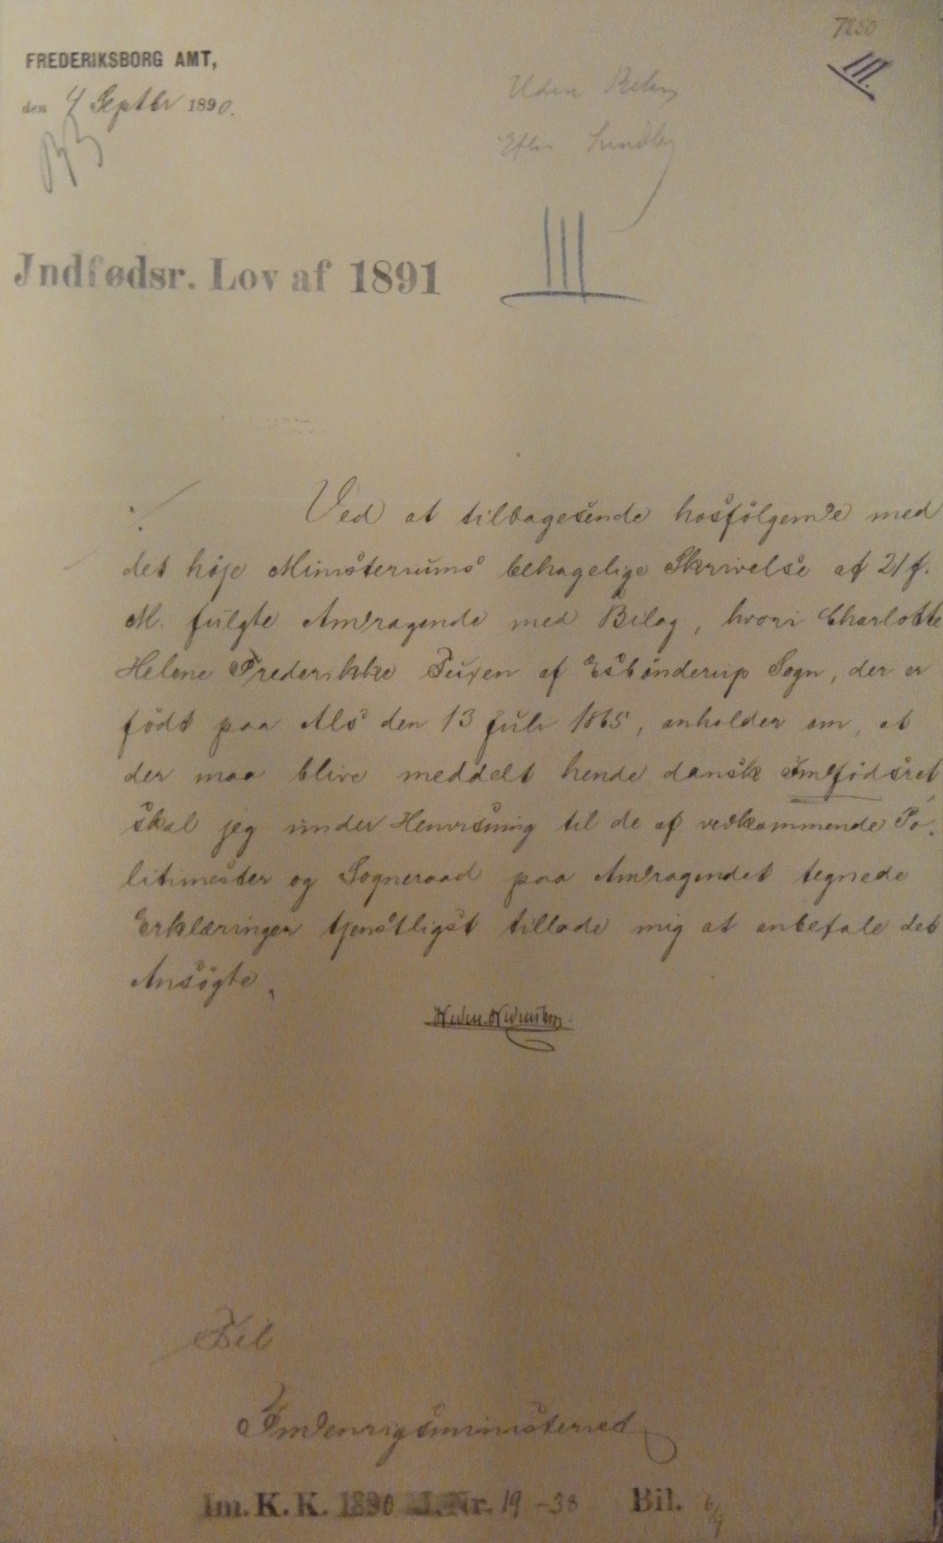 7250
III.
FREDERIKSBORG AMT,
den 4 Septbr 1890.
Uden
Efter
Jndfødsr. Lov af 1891
III
Ved at tilbagesende hosfölgende med
det höje Ministeriums behagelige Skrivelse af 21 f.
M. fulgte Andragende med Bilag, hvori Charlotte
Helene Frederikke Tuxen af Esbönderup Sogn, der er
född paa Als den 13 Juli 1865, anholder om, at
der maa blive meddelt hende dansk Indfödsret,
skal jeg under Henvisning til de af vedkommende Po-
litimester og Sogneraad paa Andragendet tegnede
Erklæringer tjenstligst tillade mig at anbefale det
Ansögte.
Til
Indenrigsministeriet
Im. K. K. 1890 J. Nr. 19-38 Bil. 6/9